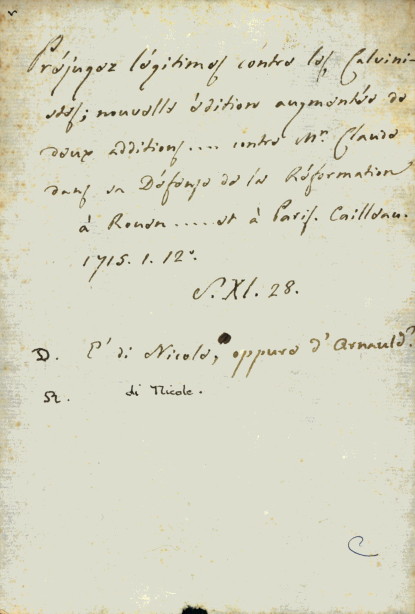 Préjugez légitimes contre les Calvini-
stes; nouvelle édition augmentée de
deux additions.... contre Mr. Claude
dans sa Défense de la Réformation
à Rouen.....et à Paris. Cailleau.
1715. 1. 12°.
S. XI. 28.
D. E' di Nicole, oppure d'Arnauld?
R. di Nicole.
C